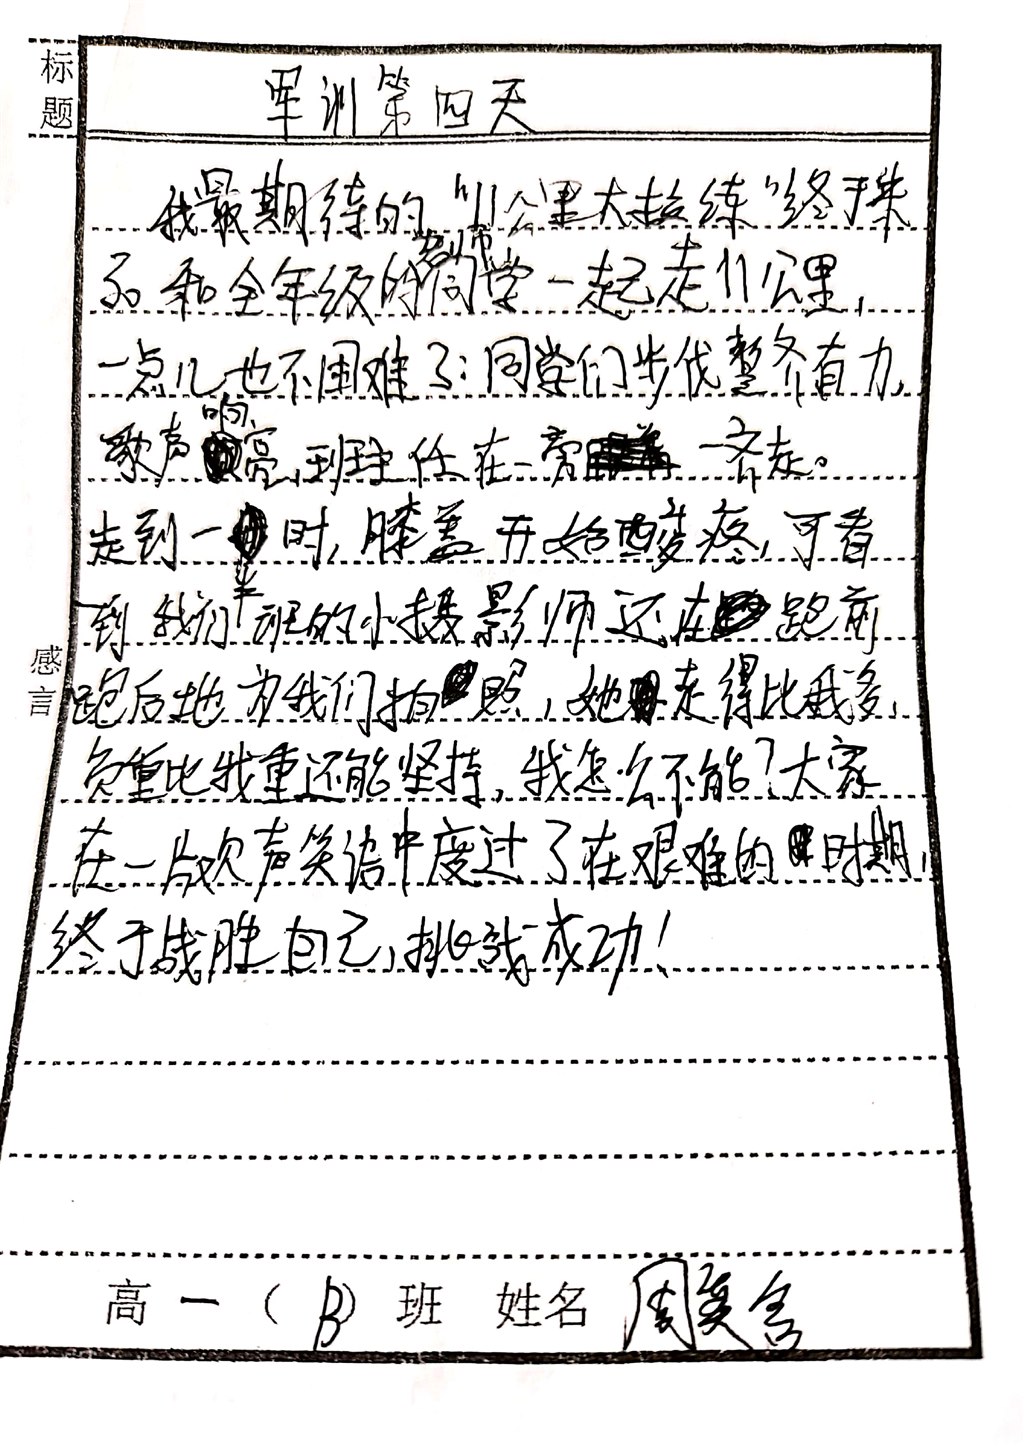 标题
军训第四天
我最期待的“11公里大拉练”终于来
了。和全年级的老师同学一起走11公里，
一点儿也不困难了：同学们步伐整齐有力，
歌声响亮，班主任在一旁一齐走。
走到一半时，膝盖开始酸疼，可看
到我们班的小摄影师还在跑前
跑后地为我们拍照，她走得比我多，
负重比我重还能坚持，我怎么不能？大家
在一片欢声笑语中度过了在艰难的时期，
终于战胜自己，挑战成功！
感言
高一（ ）班 姓名 周奕含